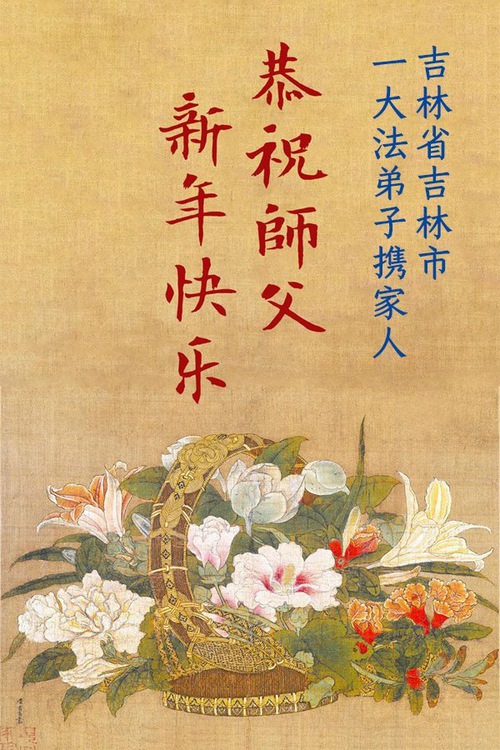 吉林省吉林市
一大法弟子携家人
恭祝師父
新年快乐